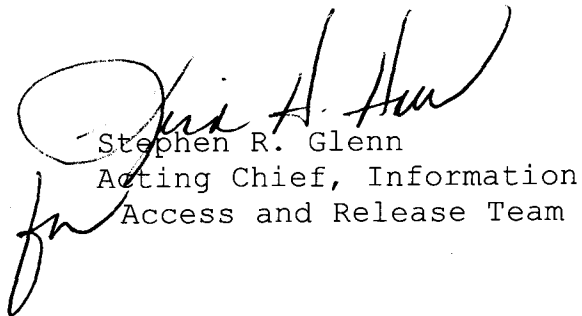 H.
Stephen R. Glenn
Acting Chief, Information
Access and Release Team
for